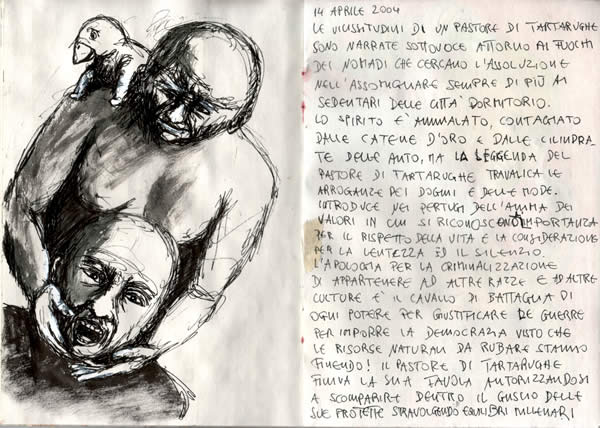 14 APRILE 2004
LE VICISSITUDINI DI UN PASTORE DI TARTARUGHE
SONO NARRATE SOTTOVOCE ATTORNO AI FUOCHI
DEI NOMADI CHE CERCANO L'ASSOLUZIONE
NELL'ASSOMIGLIARE SEMPRE DI PIÙ AI
SEDENTARI DELLE CITTA' DORMITORIO.
LO SPIRITO E' AMMALATO, CONTAGIATO
DALLE CATENE D'ORO E DALLE CILINDRA-
TE DELLE AUTO, MA LA LEGGENDA DEL
PASTORE DI TARTARUGHE TRAVALICA LE
ARROGANZE DEI DOGMI E DELLE MODE.
INTRODUCE NEI PERTUGI DELL'ANIMA DEI
VALORI IN CUI SI RICONOSCE IMPORTANZA
PER IL RISPETTO DELLA VITA E LA CONSIDERAZIONE
PER LA LENTEZZA ED IL SILENZIO.
L'APOLOGIA PER LA CRIMINALIZZAZIONE
DI APPARTENERE AD ALTRE RAZZE E AD ALTRE
CULTURE E' IL CAVALLO DI BATTAGLIA DI
OGNI POTERE PER GIUSTIFICARE LE GUERRE
PER IMPORRE LA DEMOCRAZIA VISTO CHE
LE RISORSE NATURALI DA RUBARE STANNO
FINENDO! IL PASTORE DI TARTARUGHE
FINIVA LA SUA FAVOLA AUTORIZZANDOSI
A SCOMPARIRE DENTRO IL GUSCIO DELLE
SUE PROTETTE STRAVOLGENDO EQUILIBRI MILLENARI